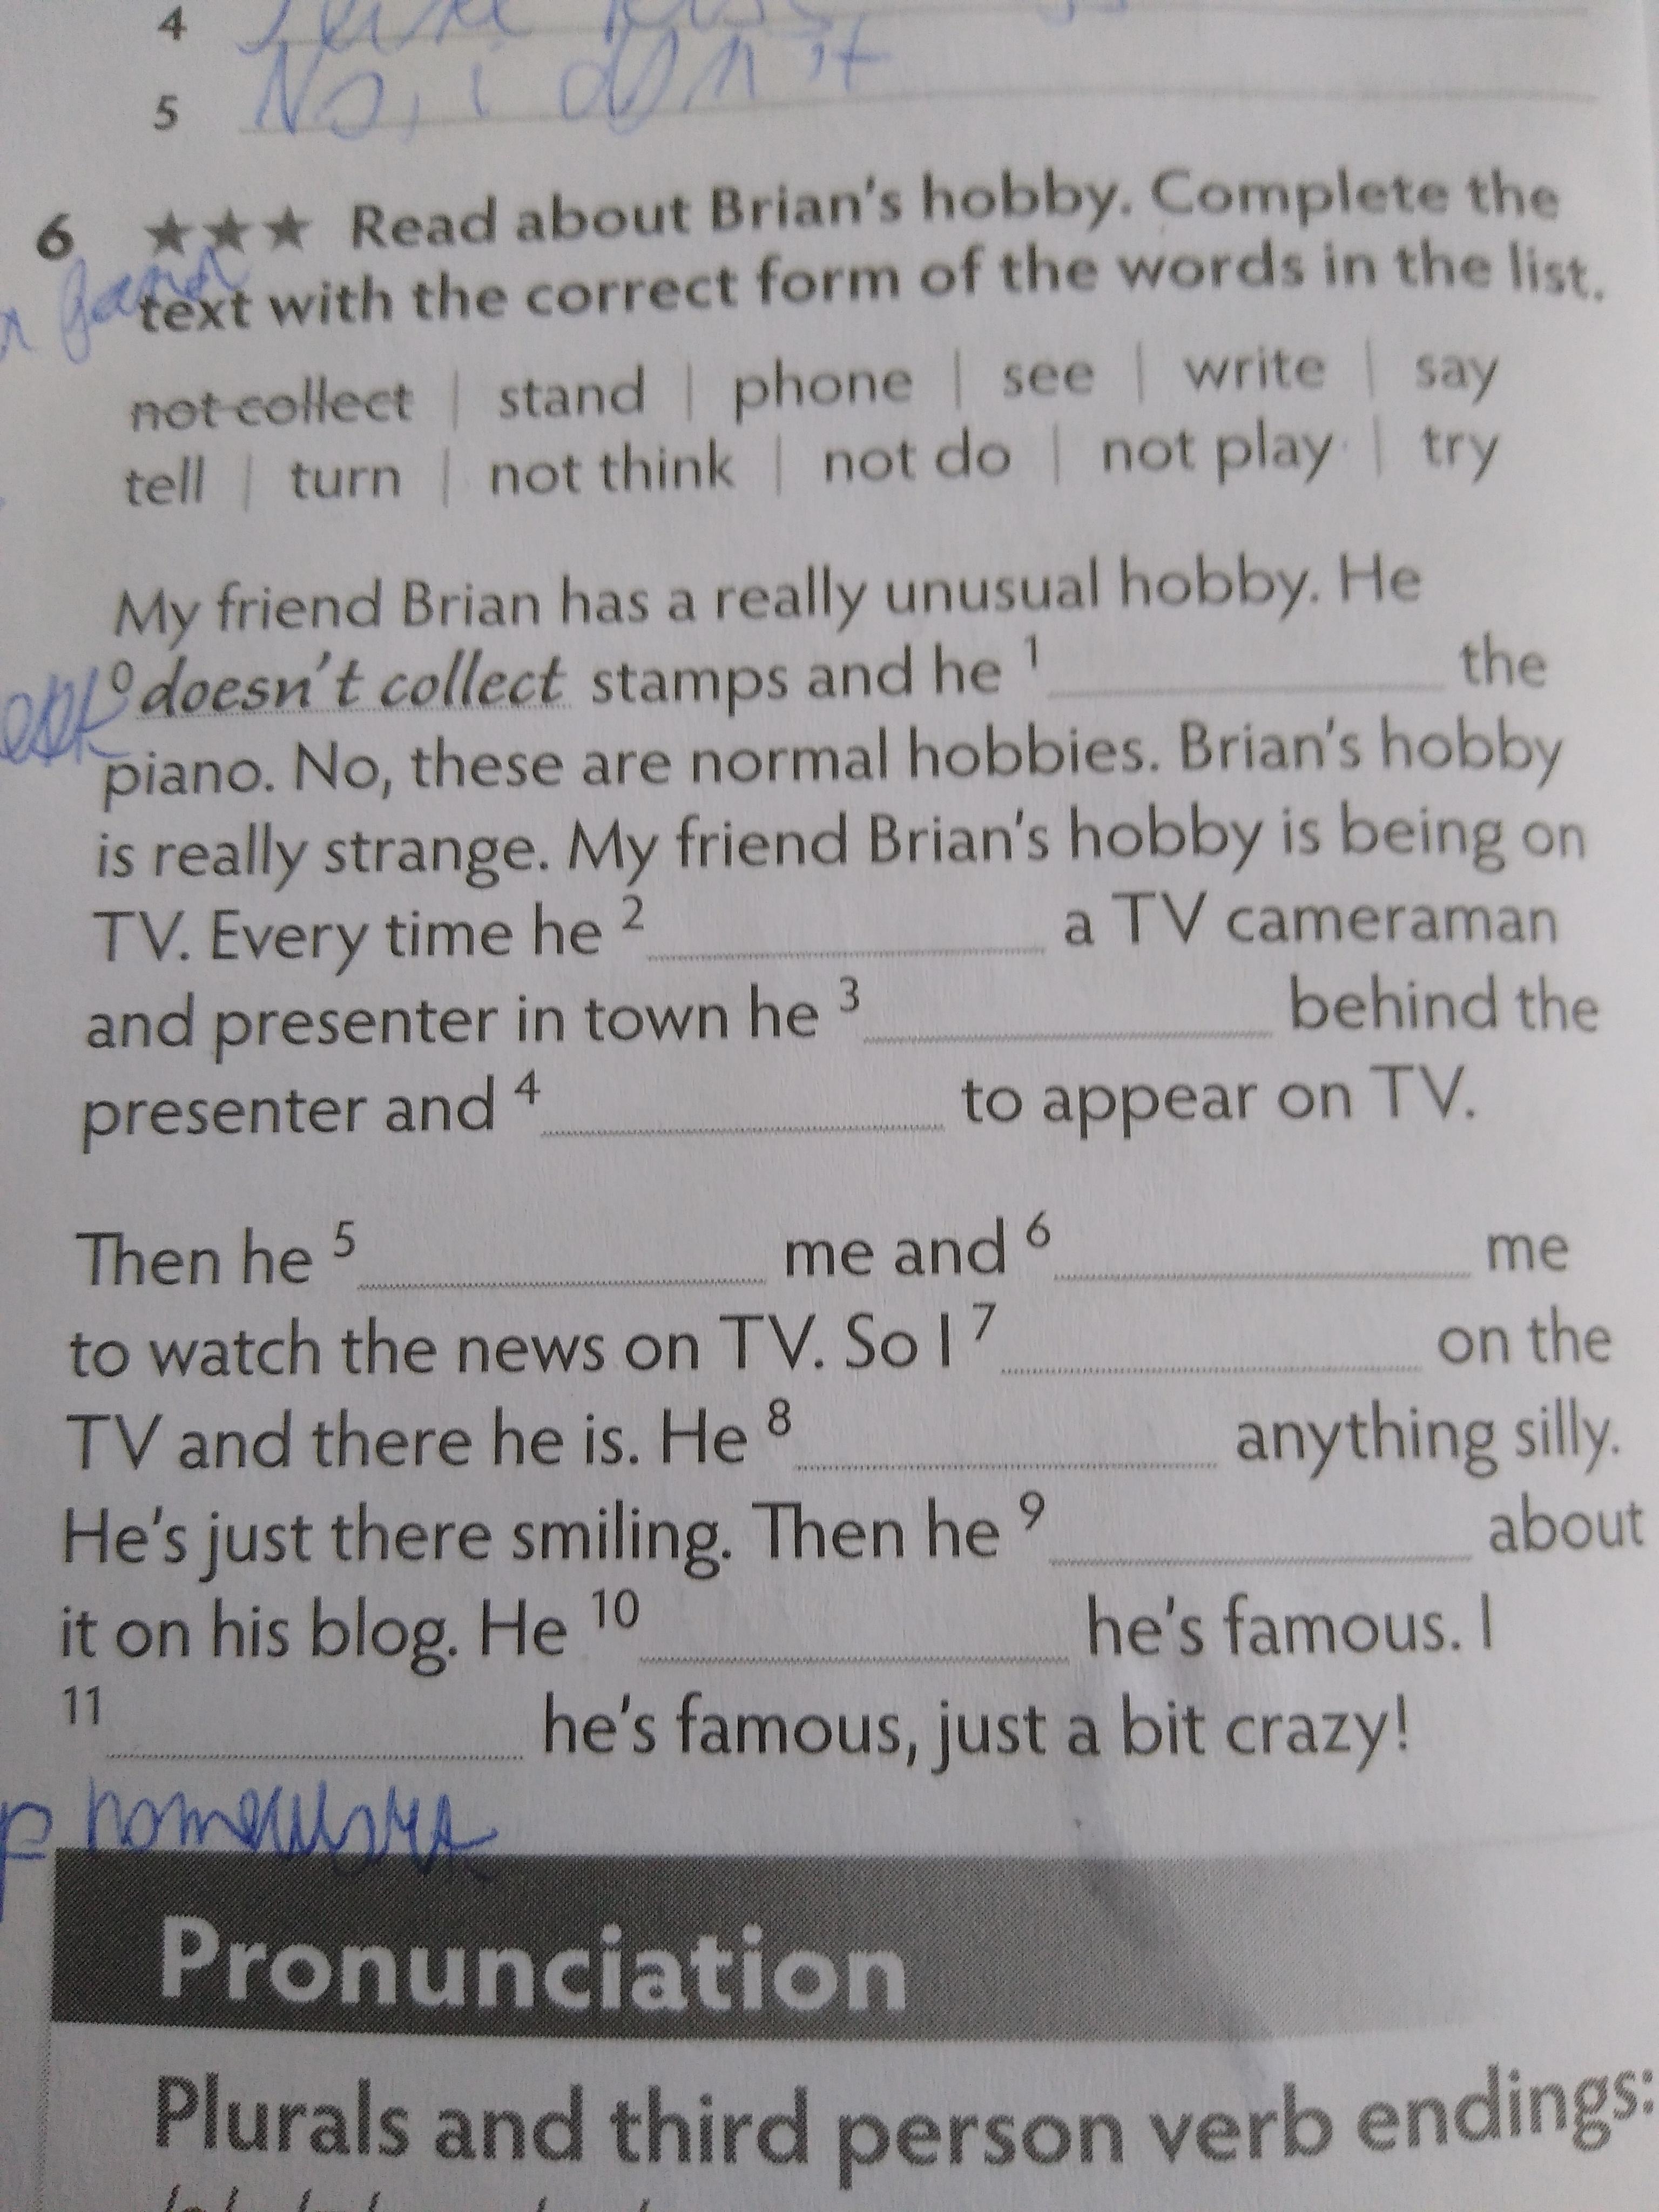 4
5 No, i don't
6 ★★★ Read about Brian's hobby. Complete the
text with the correct form of the words in the list.
not collect | stand | phone | see | write | say
tell | turn | not think | not do | not play | try
My friend Brian has a really unusual hobby. He
0 doesn't collect stamps and he 1 the
piano. No, these are normal hobbies. Brian's hobby
is really strange. My friend Brian's hobby is being on
TV. Every time he 2 a TV cameraman
and presenter in town he 3 behind the
presenter and 4 to appear on TV.
Then he 5 me and 6 me
to watch the news on TV. So I 7 on the
TV and there he is. He 8 anything silly.
He's just there smiling. Then he 9 about
it on his blog. He 10 he's famous. I
11 he's famous, just a bit crazy!
homework
Pronunciation
Plurals and third person verb endings: